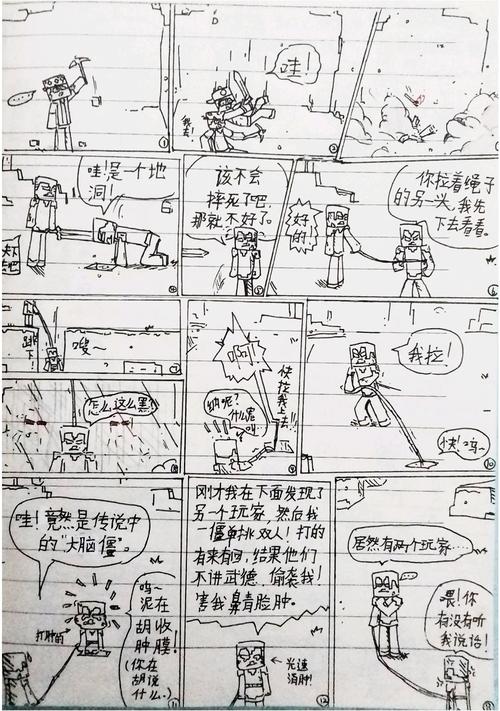 ……
①
哇!
我
去!
②
③
哇!是一个地
洞!
下
去吧
④
该不会
摔死了吧,
那就不好了。
⑤
好
的
你拉着绳子
的另一头,我先
下去看看。
⑥
跳
下
嗖~
⑦
怎么这么黑?
⑧
快拉我上去!!
什么
⑨
我拉!
快!呜~
⑩
哇!竟然是传说中
的“大脑僵”。
打肿的
呜~
泥在
胡收
肿膜!
(你在
胡说
什么。)
⑪
刚才我在下面发现了
另一个玩家,然后我一
僵单挑双人!打的
有来有回,结果他们
不讲武德,偷袭我!
害我鼻青脸肿。
光速
消肿!
⑫
居然有两个玩家……
喂!你
有没有听
我说话!
⑬